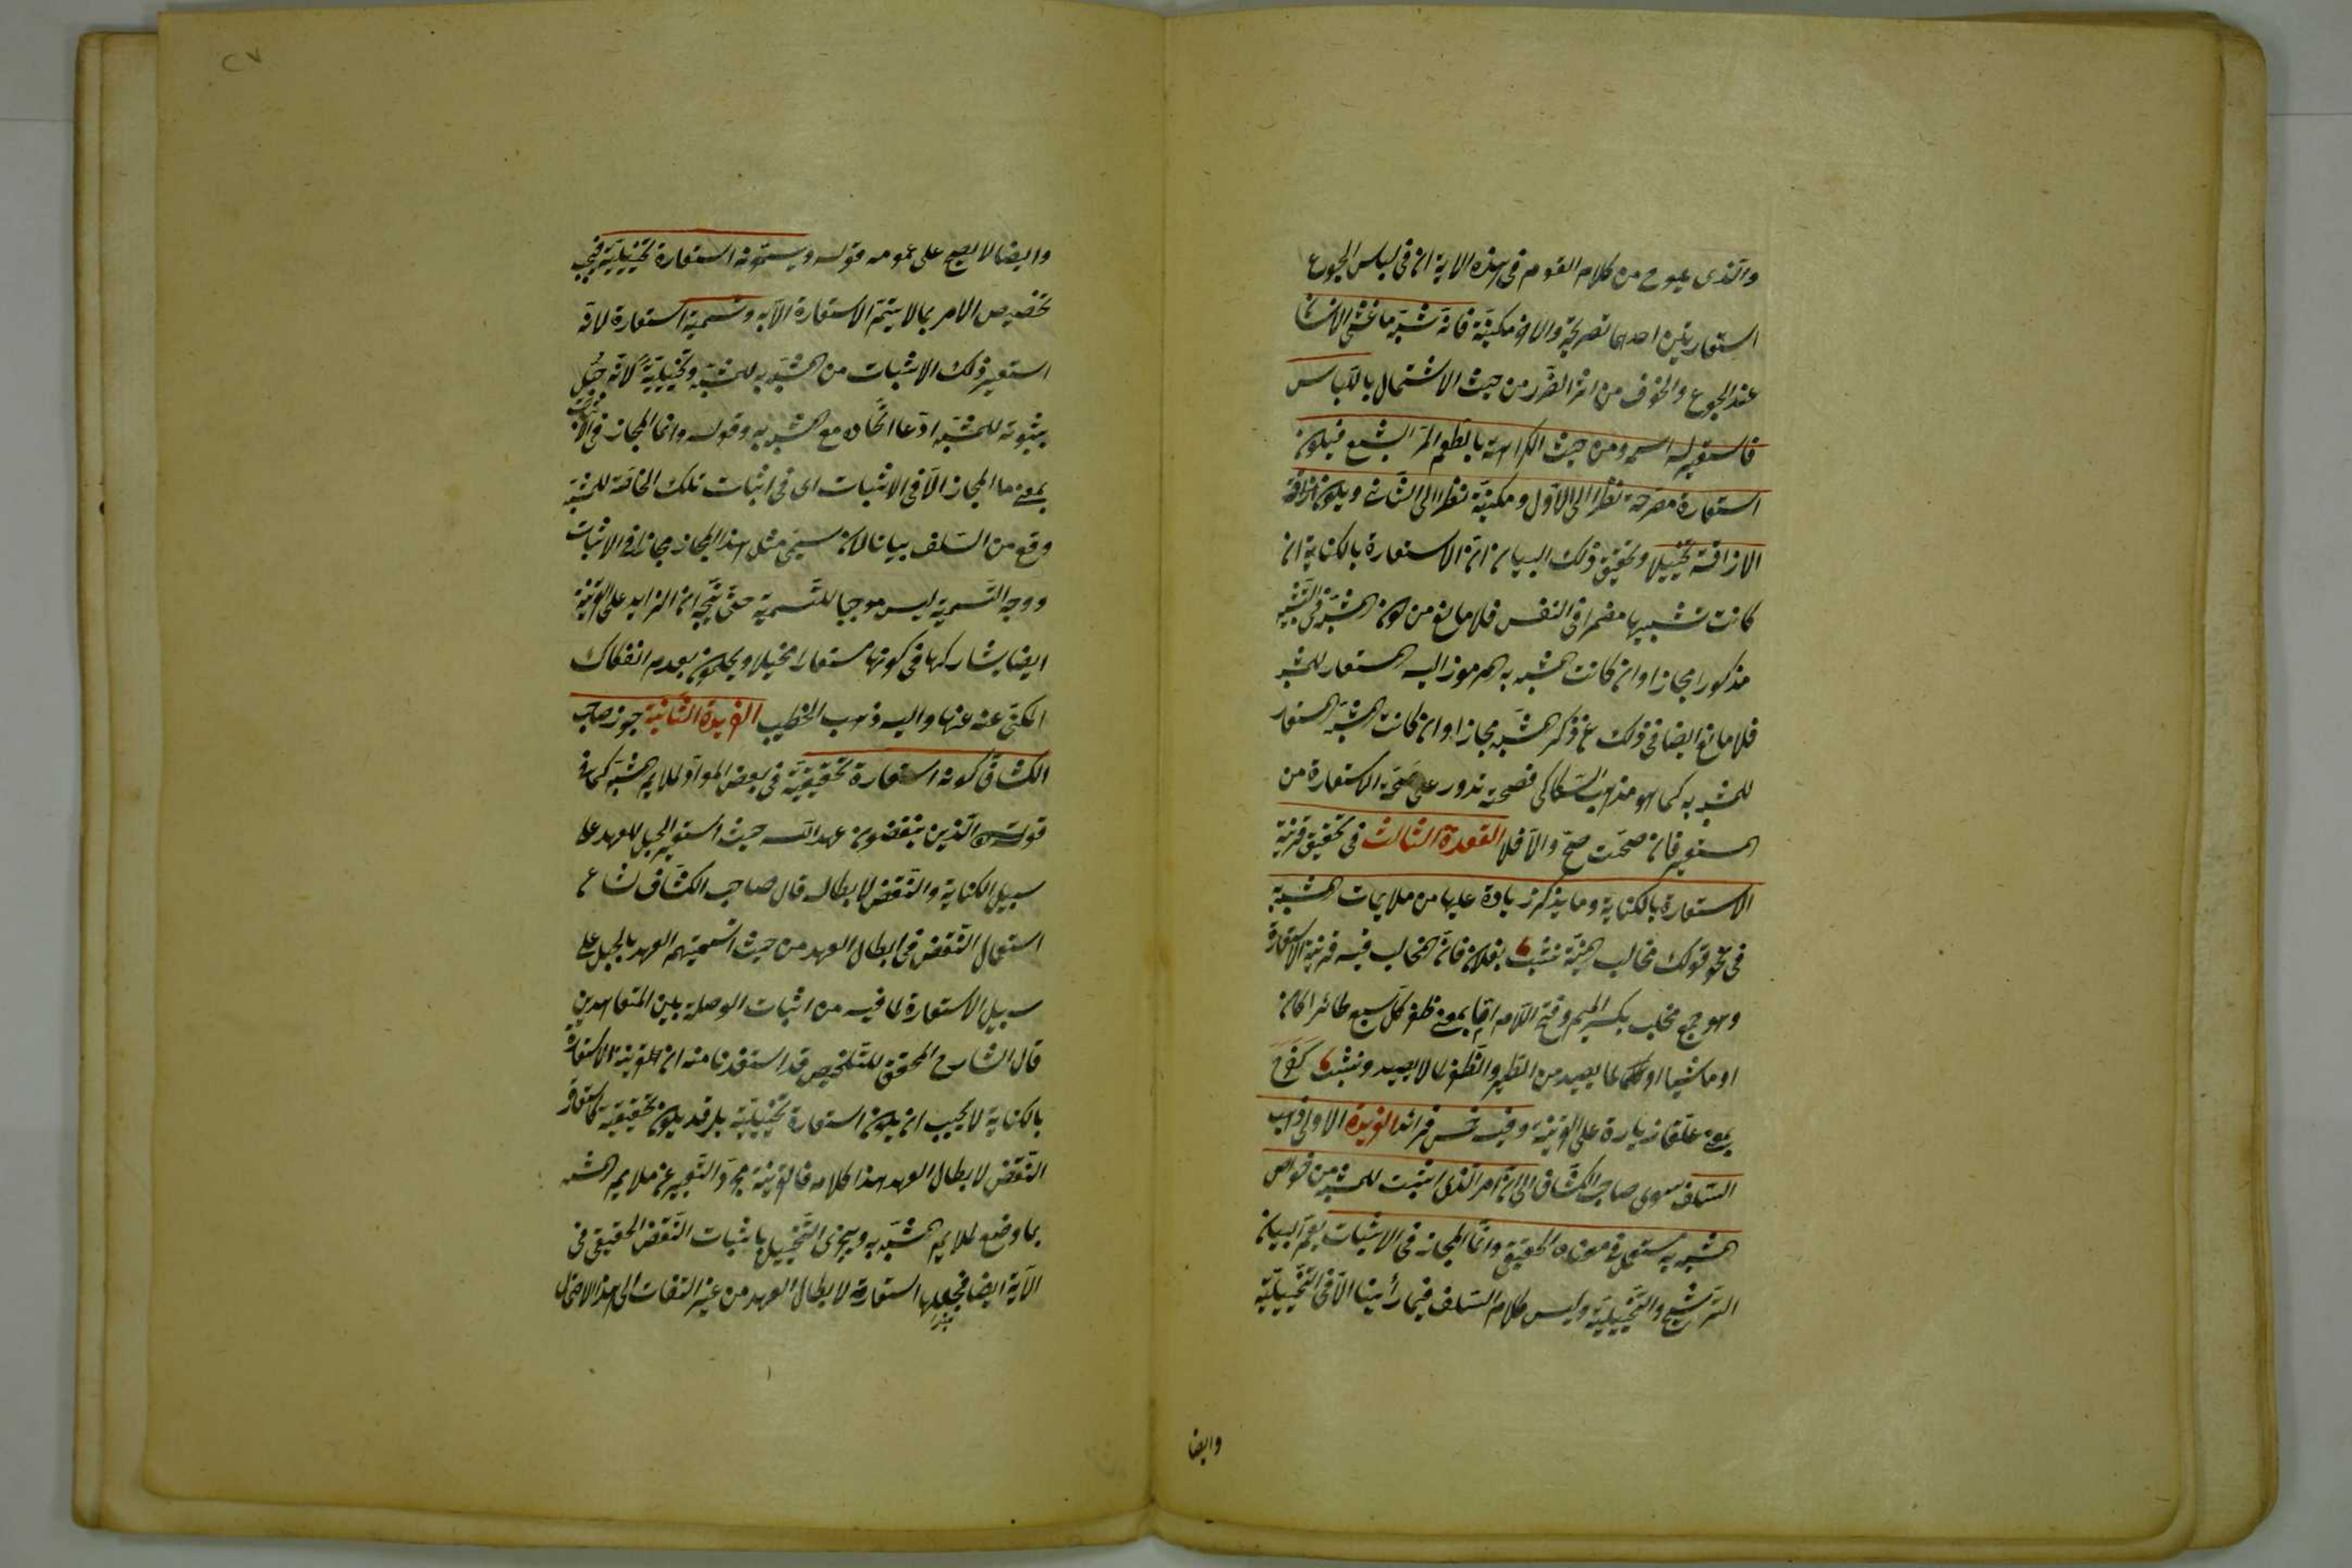 والذى يلوح من كلام القوم فى هذه الاية ان فى لباس الجوع
استعارتين احديهما تصريحية والاخرى مكنية فانه شبه ما غشى الانسان
عند الجوع والخوف من اثر الضرر من حيث الاشتمال باللباس
فاستعير له اسمه ومن حيث الكراهة بالطعم المر البشع فيكون
استعارة مصرحة نظرا الى الاول ومكنية نظرا الى الثانى ويكون اذاقة
الاذاقة تخييلا وتحقيق ذلك البيان ان الاستعارة بالكناية ان
كانت تشبيها مضمرا فى النفس فلا مانع من كون المشبه فى التشبيه
مذكورا مجازا وان كانت المشبه به المرموز اليه المستعار للمشبه
فلا مانع ايضا فى ذلك عن ذكر المشبه مجازا وان كانت المشبه المستعار
للمشبه به كما هو مذهب السكاكى فصحته تدور على صحة الاستعارة من
المستعير فان صحت صح والا فلا العقدة الثالث فى تحقيق قرينة
الاستعارة بالكناية وما يذكر زيادة عليها من ملايمات المشبه به
فى نحو قولك مخالب المنية نشبت بفلان فان المخالب فيه قرينة الاستعارة
وهو جمع مخلب بكسر الميم وفتح اللام اما بمعنى ظفر كل سبع طائرا كان
او ماشيا او لما يصيد من الطير والظفر لما لا يصيد ونشبت كفرح
بمعنى علق زيادة على القرينة وفيه خمس فرائد الفريدة الاولى ذهب
السلف سوى صاحب الكشاف الى ان امر الذى اثبت للمشبه من خواص
المشبه به مستعمل فى معناه الحقيقى وانما المجاز فى الاثبات يعم البيان
الترشيح والتخييلية وليس كلام السلف فيما رأينا الا فى التخييلية
وايضا
وايضا لا يصح على عمومه قوله ويسمونه استعارة تخييلية فيجب
تخصيص الامر بما لا يتم الاستعارة الا به وتسمية استعارة لانه
استعير ذلك الاثبات من المشبه به للمشبه وتخييلية لانه خيل
بثبوته للمشبه ادعا اتحاده مع المشبه به وقوله وانما المجاز فى الاثبات
بمعنى ما المجاز الا فى الاثبات اى فى اثبات تلك الخاصة للمشبه
وقع من السلف بيانا لان سمى مثل هذا المجاز مجازا فى الاثبات
ووجه التسمية ليس موجبا للتسمية حتى يتجه ان الزايد على القرينة
ايضا يشاركها فى كونها مستعارا مخيلا ويحكمون بعدم انفكاك
المكنى عنه عنها واليه ذهب الخطيب الفريدة الثانية جوز صاحب
الكشاف كونه استعارة تحقيقية فى بعض المواد لملايم المشبه كما فى
قوله الذين ينقضون عهد الله حيث استعير الحبل للعهد على
سبيل الكناية والنقض لابطاله قال صاحب الكشاف شاع
استعمال النقض فى ابطال العهد من حيث تسميتهم العهد بالحبل على
سبيل الاستعارة لما فيه من اثبات الوصلة بين المتعاهدين
قال الشارح المحقق للتلخيص قد استفدنا منه ان قرينة الاستعارة
بالكناية لا يجب ان يكون استعارة تخييلية بل قد يكون تحقيقية كاستعارة
النقض لابطال العهد هذا كلامه فالقرينة مجرد التعبير عن ملايم المشبه
بما وضع لملايم المشبه به ويجوز التخييل باثبات النقض الحقيقى فى
الاية ايضا فجعلها استعارة لابطال العهد من غير التفات الى هذا الاحتمال